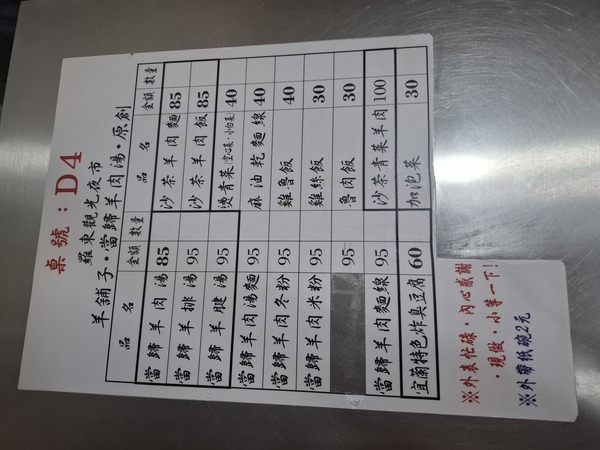 桌號：D4
羅東觀光夜市
羊舖子·當歸羊肉湯·原創
品名 金額 數量 品名 金額 數量
當歸羊肉湯 85 沙茶羊肉麵 85
當歸羊排湯 95 沙茶羊肉飯 85
當歸羊腱湯 95 燙青菜(空心菜·小白菜) 40
當歸羊肉湯麵 95 麻油乾麵線 40
當歸羊肉冬粉 95 雞魯飯 40
當歸羊肉米粉 95 雞絲飯 30
95 魯肉飯 30
當歸羊肉麵線 95 沙茶青菜羊肉 100
宜蘭特色炸臭豆腐 60 加泡菜 30
※外表忙碌·內心感謝
·現做·小等一下!
※外帶紙碗2元